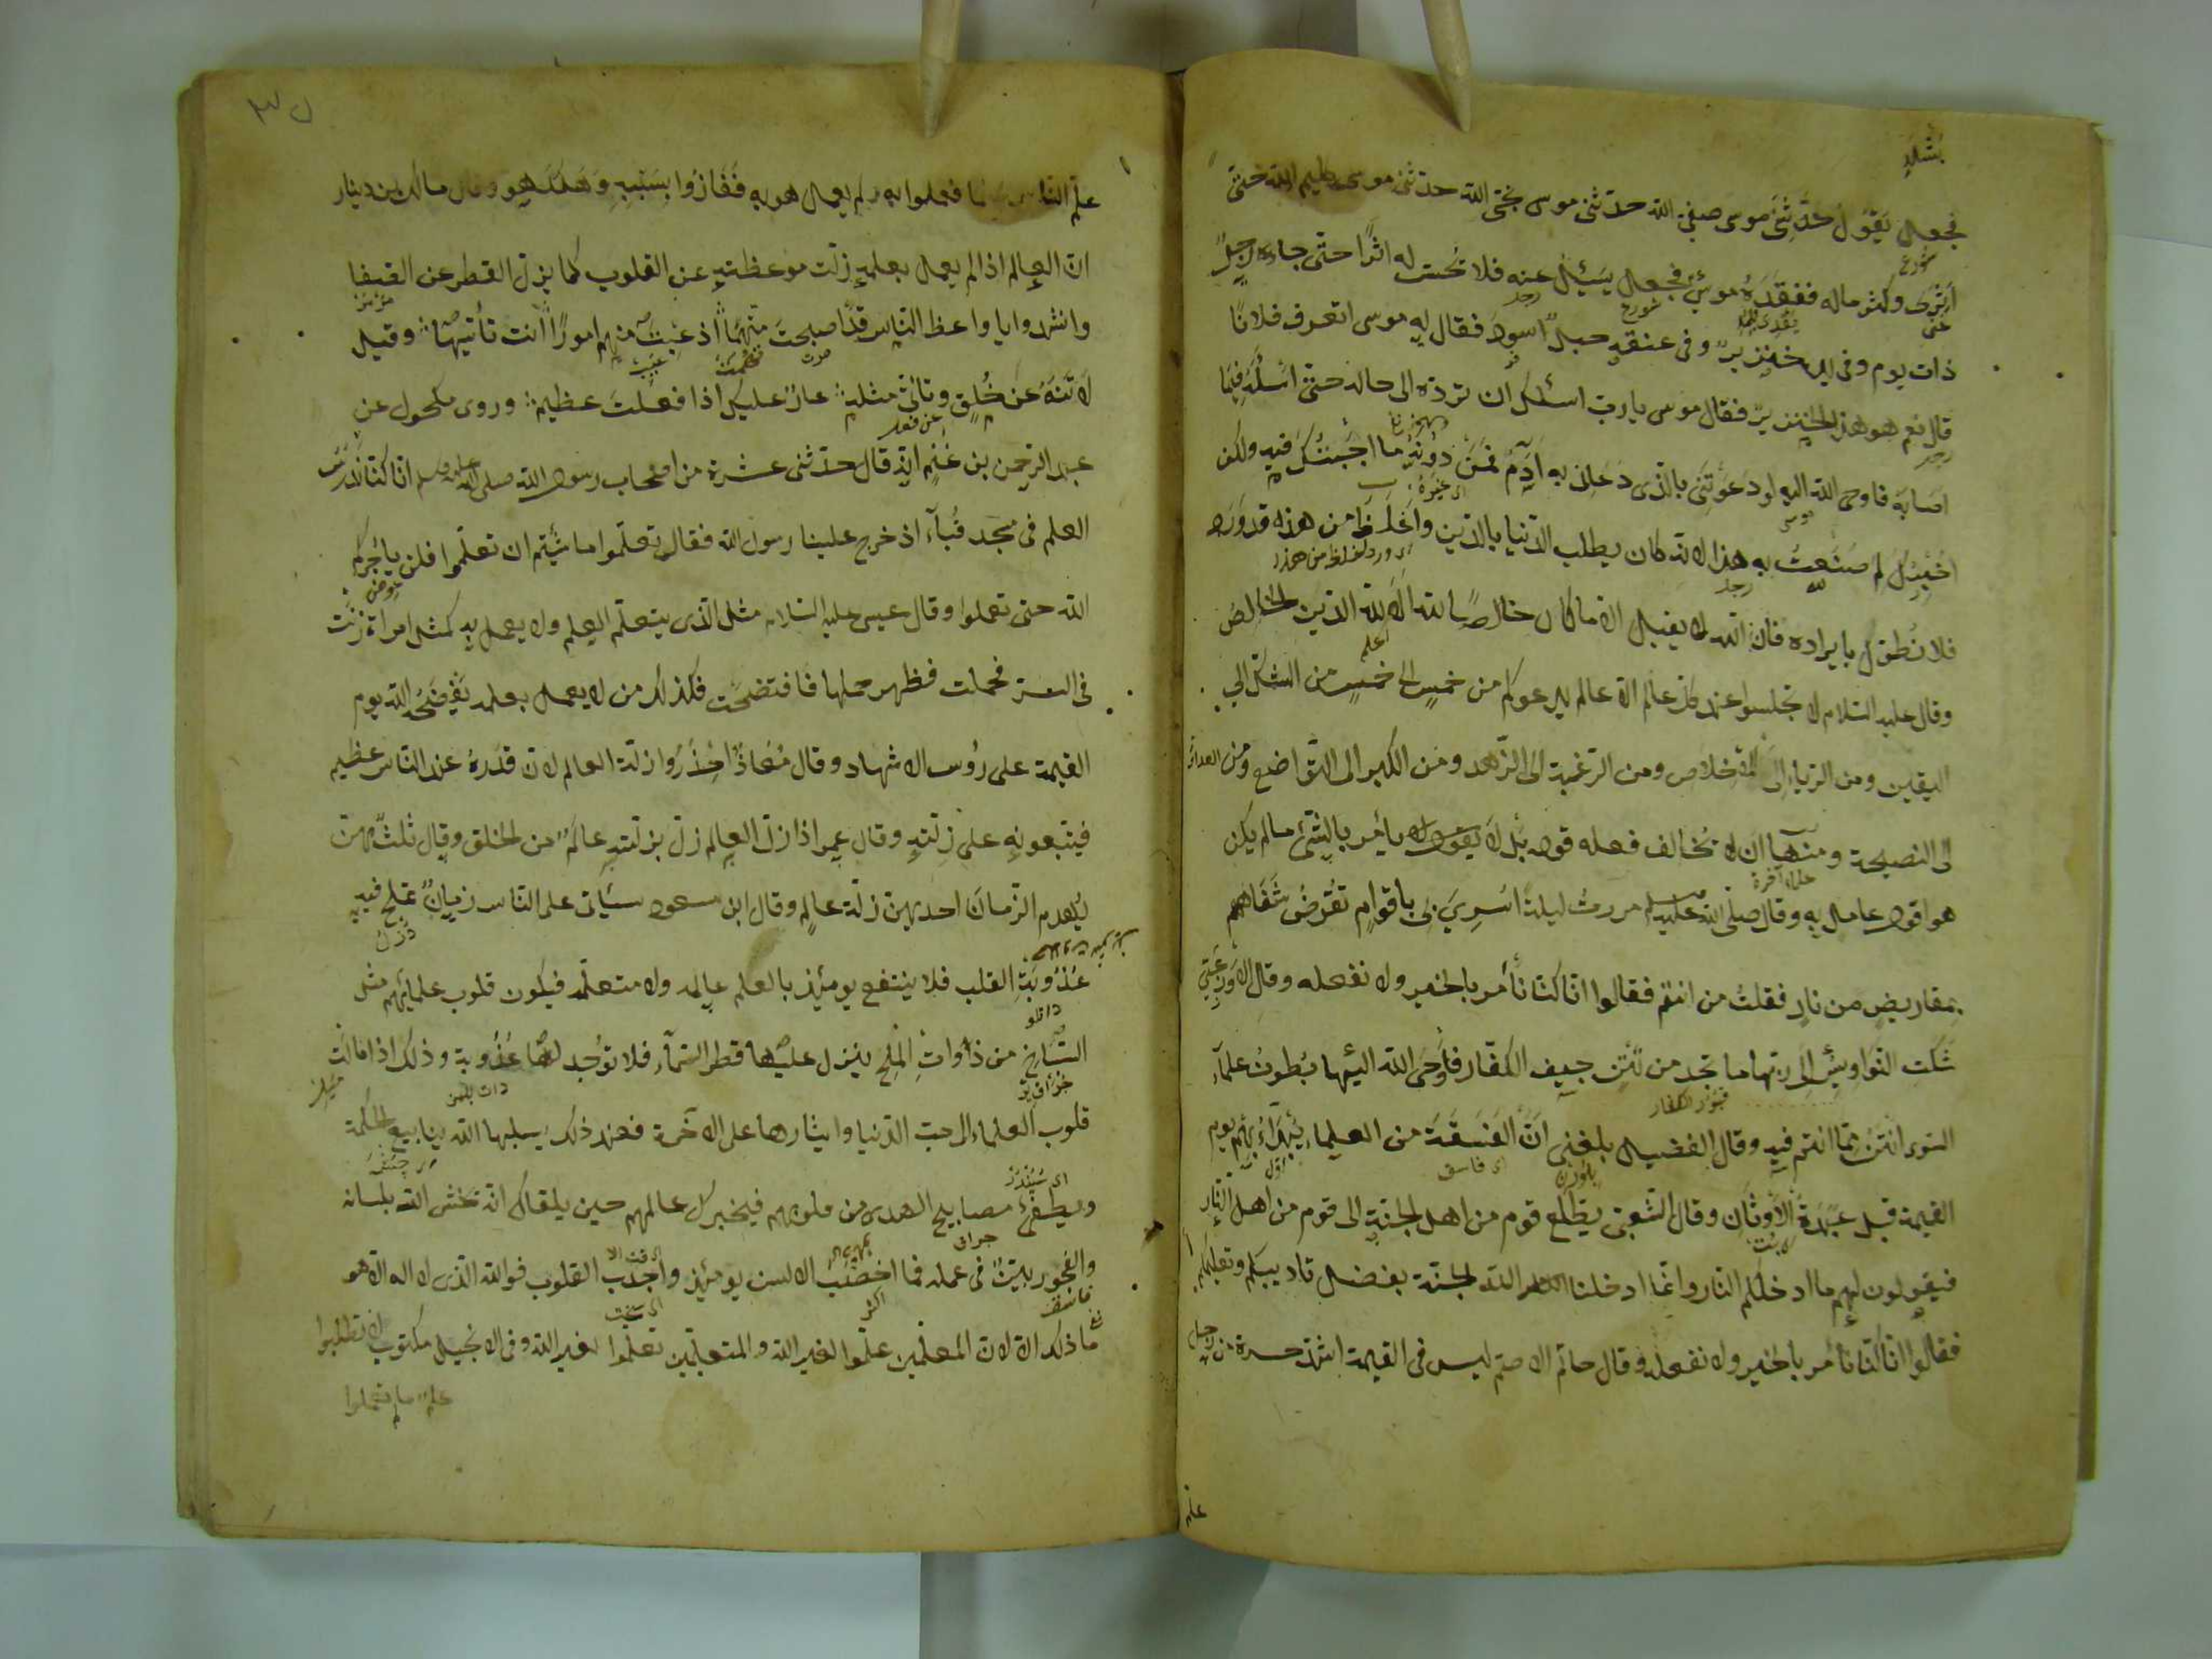 فجعل يَقُولُ حَدَّثَنى موسى صفىّ الله حدّثنى موسى نجىّ الله حدّثنى موسى كليم الله حتّى
اَثْرَى وكثر ماله ففقدَهُ موسى فجعل يسَئل عنه فلا يُحسّ له اثرًا حتّى جاءه رجلٌ
ذات يوم وفى يده خنزيرٌ وفى عنقه حبلٌ اسود فقال له موسى اتعرف فلانًا
قال نعم هو هذا الخنزير فقال موسى يا ربّ اسئلك ان تردّه الى حاله حتّى اسْئله فيما
اصابَه فاوحى الله اليه لو دعَوتَنى بالّذى دَعانى به آدَمُ فَمَنْ دُونَه ما اجَبْتُكَ فيه ولكن
اُخْبِرُكَ لِمَ صَنَعتُ به هذا لانّه كان يطلب الدّنيا بالدّين واغلظ من هذه قد وَرَد
فلا نُطوّل بايراده فانّ الله لا يقبل الّا ما كان خالصًا لله الا لله الدّين الخالص
وقال عليه السّلام لا تجلسوا عند كلّ عالم الّا عالم يدعوكم من خمسٍ الى خمسٍ من الشكّ الى
اليقين ومن الرّياء الى الاخلاص ومن الرّغبة الى الزّهد ومن الكبر الى التّواضع ومن العداوة
الى النصيحة ومنها ان لا تخالف فعله قوله بَلْ لا يأمر بالشّئ ما لم يكن
هو اوّل عامل به وقال صلّى الله عليه وسلم مررتُ ليلةَ اُسْرِىَ بى باقوامٍ تُقرَضُ شفاههم
بمقاريضَ من نارٍ فقلتُ من انتم فقالوا انّا كنّا نأمر بالخير ولا نفعله وقال الاوزاعىّ
شَكَتِ النّواويسُ الى ربّها ما تجد من نَتَنِ جيف الكفّار فاَوْحَى الله اليها بُطونُ علمآء
السّوء انتنُ ممّا انتم فيه وقال الفضيل بلغنى اَنَّ الفَسَقَةَ من العلماء يُبْدَأُ بهم يوم
القيمة قبل عبدة الاَوثان وقال الشّعبى يطّلع قوم من اهل الجنّة الى قوم من اهل النّار
فيقولون لهم ما ادخلكم النّار وانّما ادخلنا الله الجنّة بفضل تاديبكم وتعليمكم
فقالوا انّا كنّا نأمر بالخير ولا نفعله وقال حاتم الاصمّ ليس فى القيمة اشدّ حسرة من رجل
علّم
علّم النّاس فعملوا به ولم يعمل هو به ففازُوا بسببه وهلك هو وقال مالك بن دينار
انّ العالم اذا لم يعمل بعلمه زلّت موعظته عن القلوب كما يزلّ القطر عن الصّفا
وانشدوا يا واعظ النّاس قد اصبحتَ متّهمًا اذ عِبْتَ منهم امورًا انت تأتيها وقيل
لا تَنْهَ عَنْ خُلُقٍ وتأتىَ مثلَه عارٌ عليك اذا فعلتَ عظيم وروى مكحول عن
عبد الرّحمن بن غَنْم انّه قال حدّثنى عشرة من اصحاب رسول الله صلى الله عليه وسلم انّا كنّا نتدرّس
العلم فى مسجد قُبآء اذ خرج علينا رسول الله فقال تعلّموا ما شئتم ان تعلّموا فلن يأجركم
الله حتى تعملوا وقال عيسى عليه السّلام مثل الّذى يتعلّم العلم ولا يعمل به كمثل امرأة زنت
فى السرّ فحملت فظهر حملها فافتضحت فكذلك من لا يعمل بعلمه يَفْضَحُه الله يوم
القيمة على رُؤس الاشهاد وقال مُعاذٌ احْذَرُوا زلّة العالم لانّ قدرهُ عند النّاس عظيم
فيتّبعونه على زلّته وقال عمر اذا زلّ العالم زلّ بزلّته عالَمٌ من الخلق وقال ثلث بهنّ
يُهدم الزّمان احديهنّ زلّة عالمٍ وقال ابن مسعود سيأتى على النّاس زمانٌ تملح فيه
عُذُوبَةُ القلب فلا ينتفع يومئذ بالعلم عالمه ولا متعلّمه فيكون قلوب علمائهم مثل
السّباخ من ذوات الملح ينزل عليها قطر السّمآء فلا توُجد لها عُذُوبة وذلك اذا مالت
قلوب العلماء الى حبّ الدّنيا وايثارها على الآخرة فعند ذلك يسلبها الله ينابيع الحكمة
ويطفئ مصابيح الهدى من قلوبهم فيخبرك عالمهم حين يلقاك انّه يخشى الله بلسانه
والفجور بيّنٌ فى عمله فما اخصب الالسن يومئذ واجدب القلوب فوالله الّذى لا اله الّا هو
ما ذلك الّا لانّ المعلّمين علّموا لغير الله والمتعلّمين تعلّموا لغير الله وفى الانجيل مكتوب لا تطلبوا
علم ما لم تعملوا